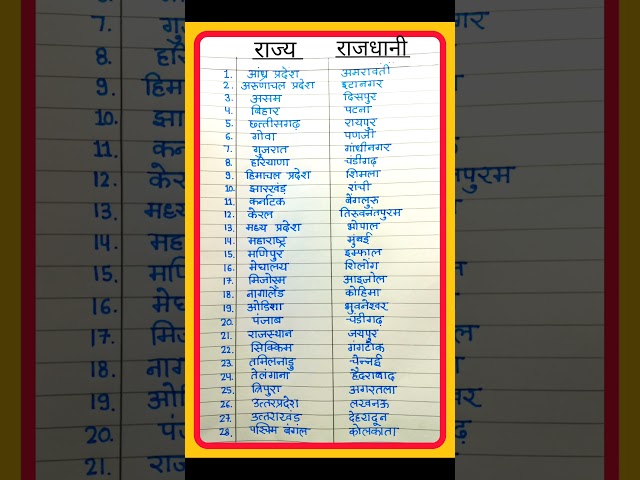 राज्य राजधानी
1. आंध्र प्रदेश अमरावती
2. अरुणाचल प्रदेश इटानगर
3. असम दिसपुर
4. बिहार पटना
5. छत्तीसगढ़ रायपुर
6. गोवा पणजी
7. गुजरात गांधीनगर
8. हरियाणा चंडीगढ़
9. हिमाचल प्रदेश शिमला
10. झारखंड रांची
11. कर्नाटक बेंगलुरु
12. केरल तिरुवनंतपुरम
13. मध्य प्रदेश भोपाल
14. महाराष्ट्र मुंबई
15. मणिपुर इम्फाल
16. मेघालय शिलोंग
17. मिजोरम आइजोल
18. नागालैंड कोहिमा
19. ओडिशा भुवनेश्वर
20. पंजाब चंडीगढ़
21. राजस्थान जयपुर
22. सिक्किम गंगटोक
23. तमिलनाडु चैन्नई
24. तेलंगाना हैदराबाद
25. त्रिपुरा अगरतला
26. उत्तरप्रदेश लखनऊ
27. उत्तराखंड देहरादून
28. पश्चिम बंगाल कोलकाता